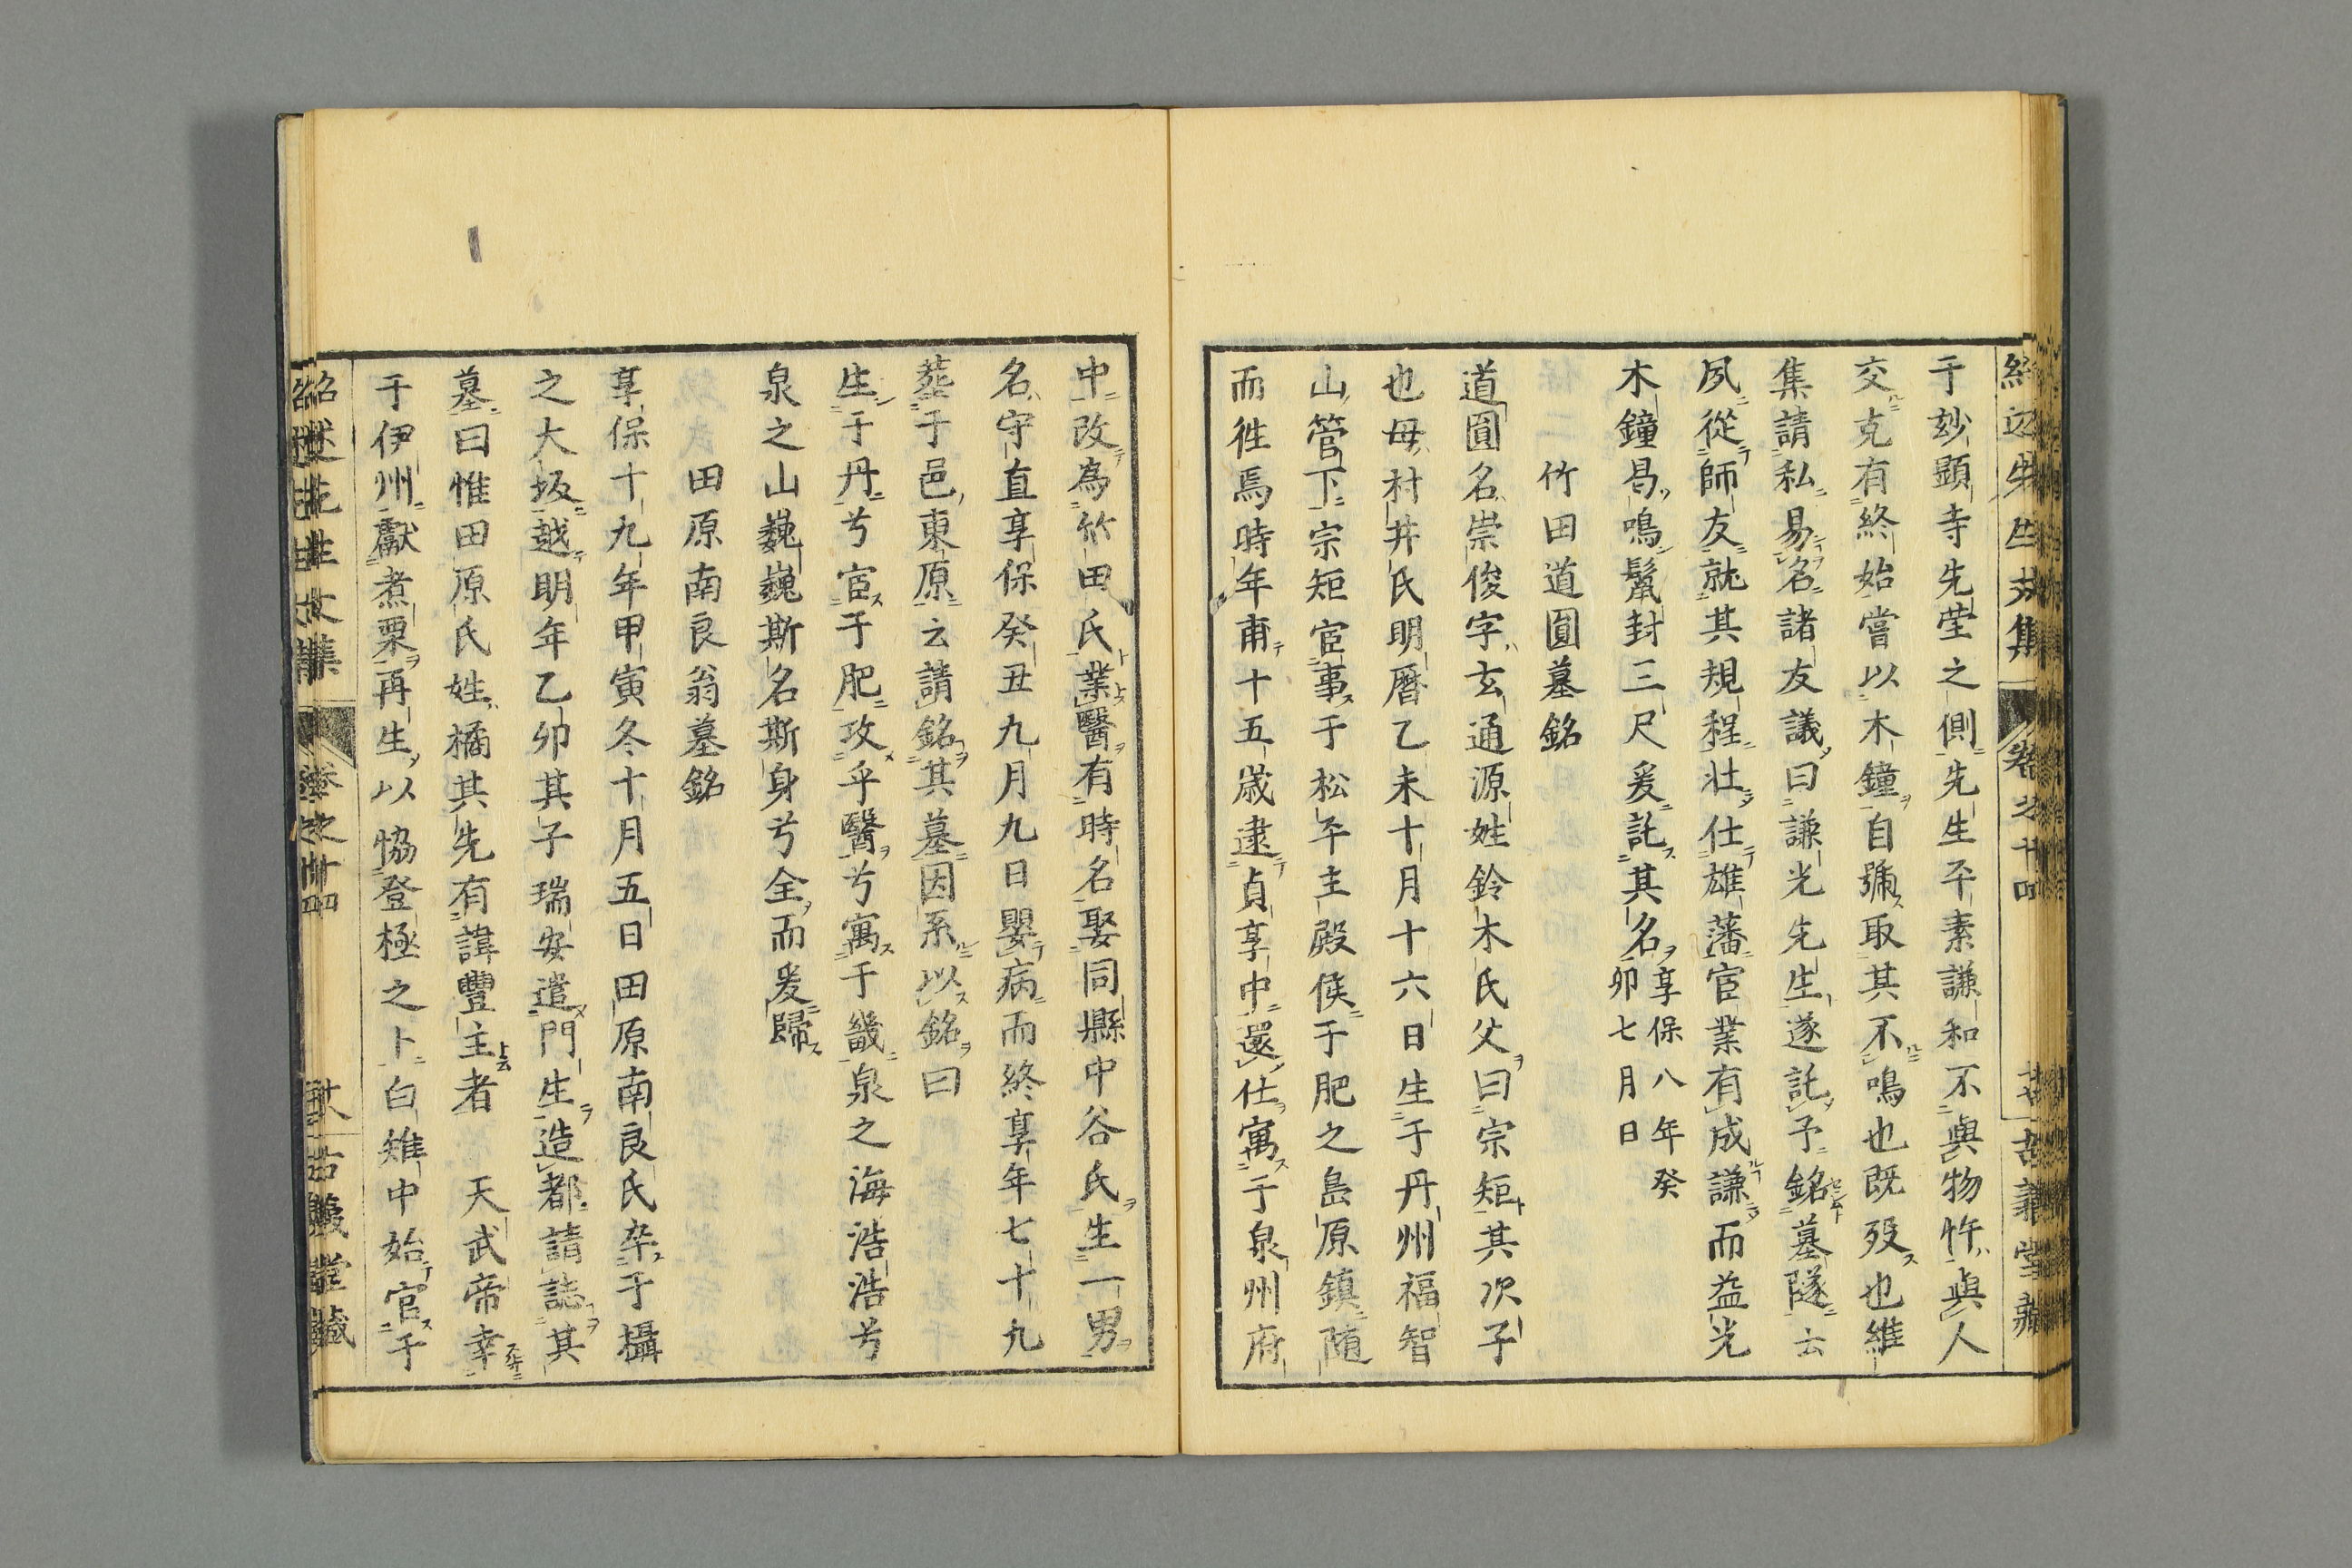 于妙顕寺先塋之側先生平素謙和不與物忤與人
交克有終始嘗以木鐘自號取其不鳴也既歿也維
集請私易名諸友議曰謙光先生遂託予銘墓隧云
夙從師友就其規程壮仕雄藩宦業有成謙而益光
木鐘曷鳴鬣封三尺爰託其名享保八年癸
卯七月日
竹田道圓墓銘
道圓名崇俊字玄通源姓鈴木氏父曰宗矩其次子
也母村井氏明暦乙未十月十六日生于丹州福智
山管下宗矩宦事于松平主殿侯于肥之島原鎮随
而徃焉時年甫十五歳逮貞享中還仕寓于泉州府
中改為竹田氏業醫有時名娶同縣中谷氏生一男
名守直享保癸丑九月九日嬰病而終享年七十九
葬于邑東原云請銘其墓因系以銘曰
生于丹兮宦于肥攻乎醫兮寓于畿泉之海浩浩兮
泉之山巍巍斯名斯身兮全而爰歸
田原南良翁墓銘
享保十九年甲寅冬十月五日田原南良氏卒于攝
之大坂越明年乙卯其子瑞安遣門生造都請誌其
墓曰惟田原氏姓橘其先有諱豐主者 天武帝幸
于伊州獻煮栗再生以恊登極之卜白雉中始官于
紹述先生文集 卷之十四 古義堂藏